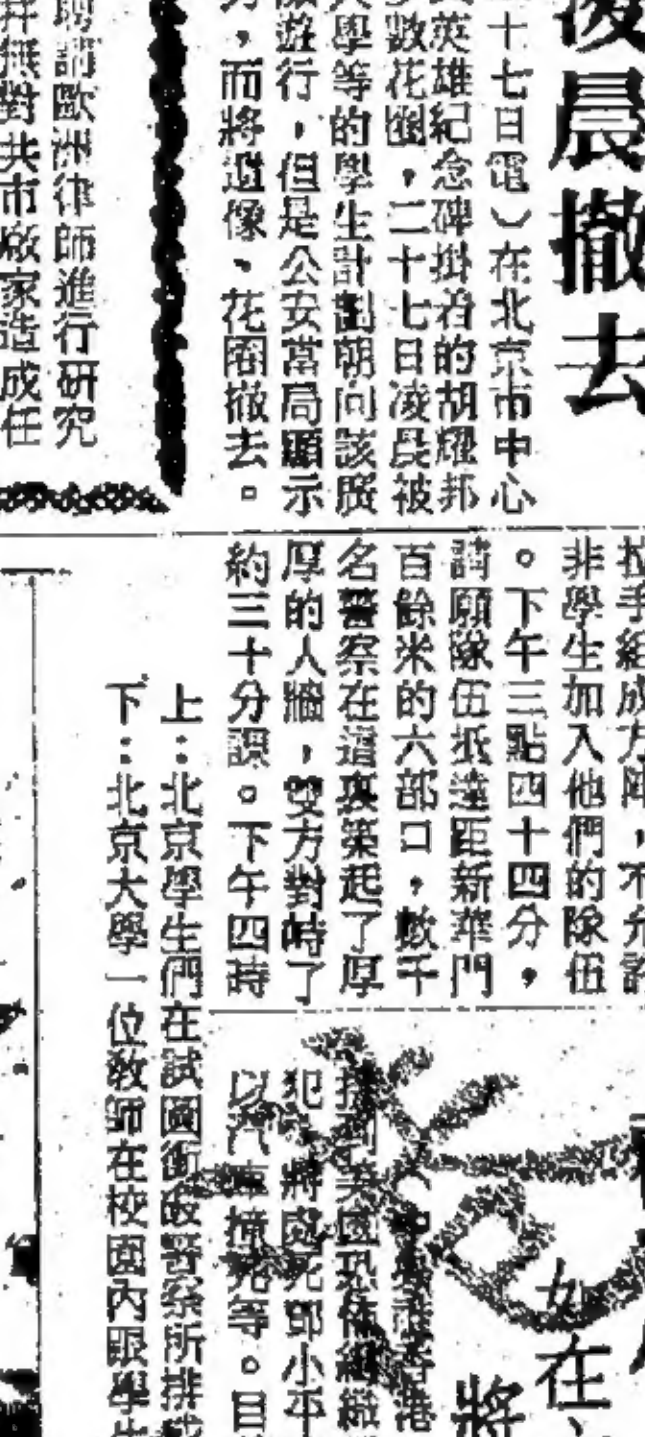 凌晨撤去
十七日電)在北京市中心
英雄紀念碑掛着的胡耀邦
數花圈,二十七日凌晨被
學等的學生計劃朝向該廣
遊行,但是公安當局顯示
,而將遺像、花圈撤去。
聘請歐洲律師進行研究
并無對共市廠家造成任
拉手組成方陣,不允許
非學生加入他們的隊伍
。下午三點四十四分,
請願隊伍抵達距新華門
百餘米的六部口,數千
名警察在道裏築起了厚
厚的人牆,雙方對峙了
約三十分課。下午四時
上:北京學生們在試圖衝破警察所排成
下:北京大學一位教師在校園內跟學生
如在
將
香港
英國恐怖組織
犯,將處死鄧小平
以汽車撞死等。目